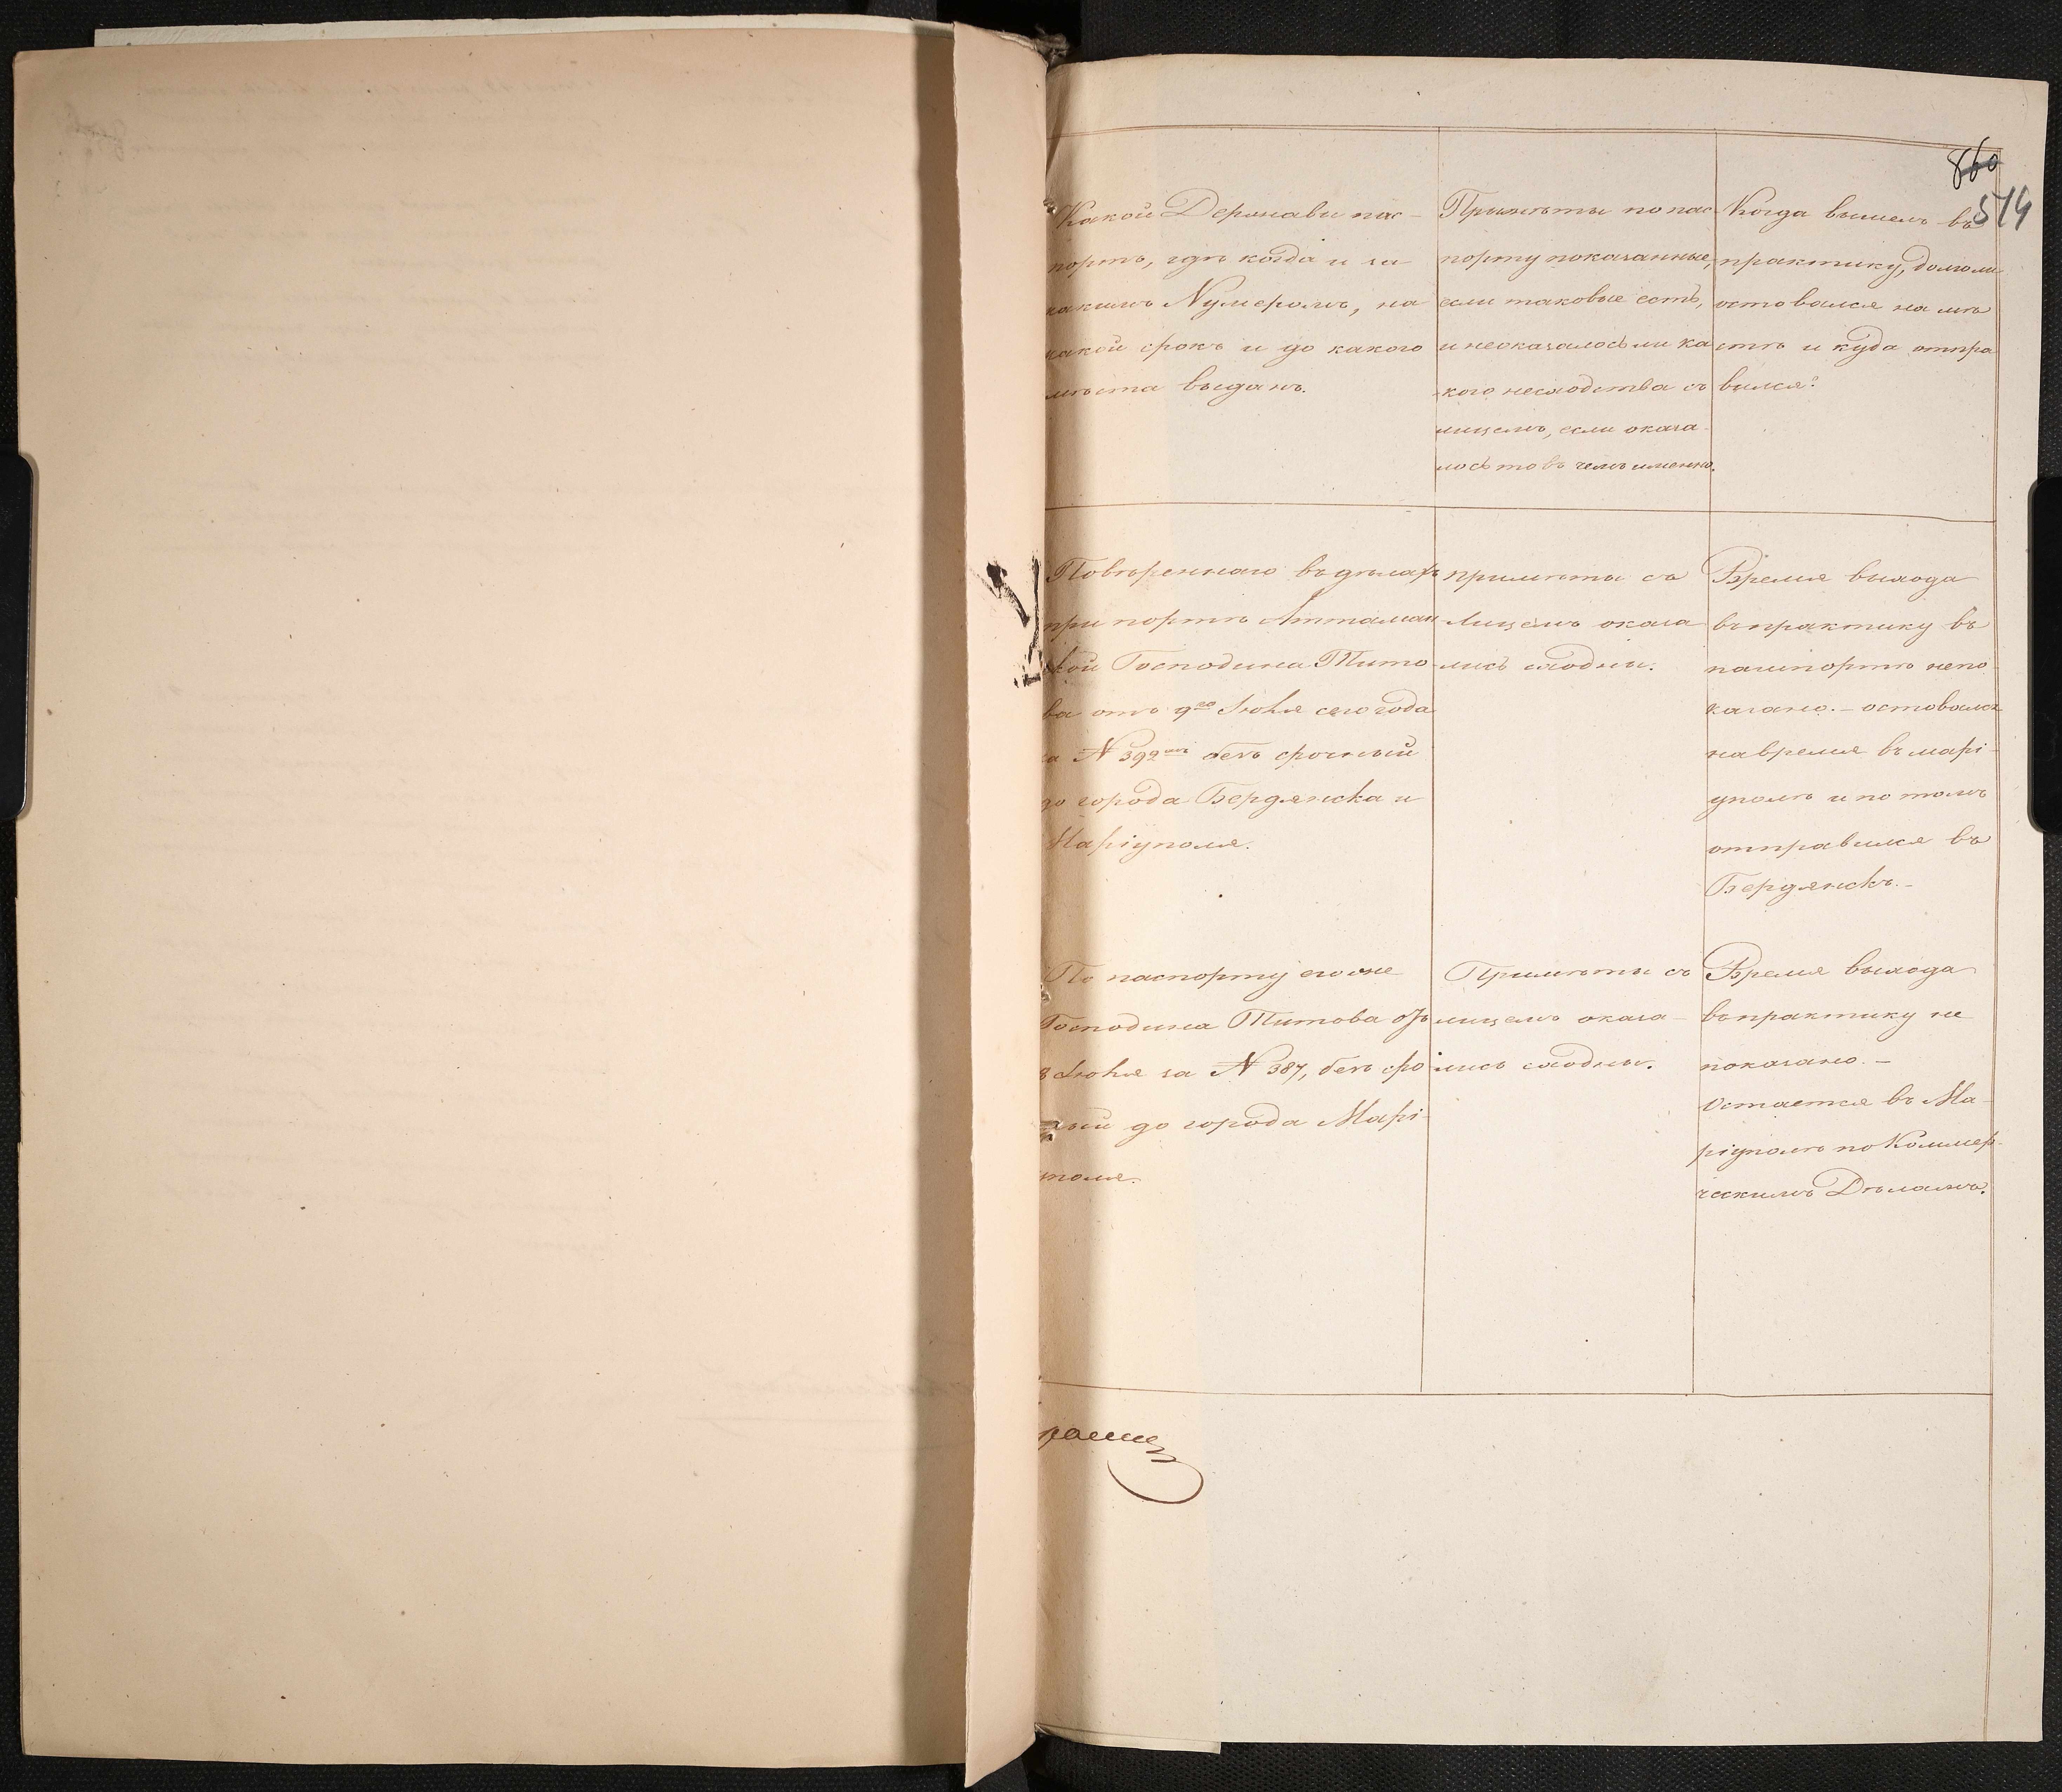 860
519
Какой Державы пас-
портъ, гдѣ когда и за
какимъ Нумеромъ, на
какой срокъ и до какого
мѣста выданъ.
Примѣты по пас-
порту показанные,
если таковые есть,
и неоказалось ли ка
кого несходства съ
лицемъ, если оказа-
лось то въ чемъ именно.
Когда вышелъ въ
практику, долго ли
оставался на мѣ
стѣ и куда отпра
вился?
Повѣреннаго въ дѣлахъ
при портѣ Аттоман
ской Господина Тито-
ва отъ 9го Іюня сего года
за N 392мъ безъ срочный
до города Бердянска и
Маріуполя.
примѣты съ
Лицемъ оказа
лись сходны.
Время выхода
въ практику въ
пашпортѣ непо
казано. - оставался
на время въ Марі-
уполѣ и по томъ
отправился въ
Бердянскъ. -
По паспорту его же
Господина Титова отъ
8 Іюня за N 387, безъ сро
чный до города Марі-
уполя.
Примѣты съ
лицемъ оказа-
лись сходны.
Время выхода
въ практику не
показано. -
Остается въ Ма-
ріуполѣ по Коммер-
ческимъ Дѣламъ.